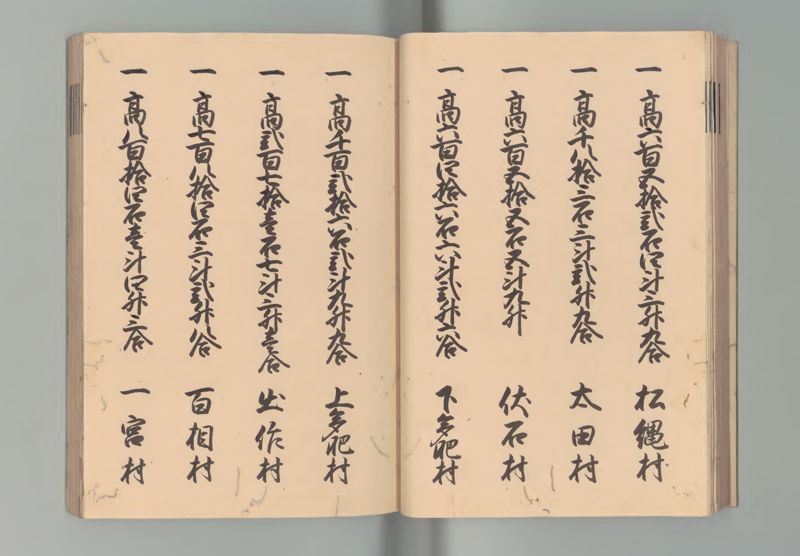 一 高六百五拾弐石四斗三升九合 松縄村
一 高千八拾三石三斗弐升九合 太田村
一 高六百五拾五石五斗九升 伏石村
一 高六百四拾六石六斗弐升六合 下多肥村
一 高千百弐拾六石弐斗九升九合 上多肥村
一 高弐百七拾壱石七斗三升壱合 出作村
一 高七百八拾四石三斗弐升八合 百相村
一 高八百拾四石壱斗四升三合 一宮村